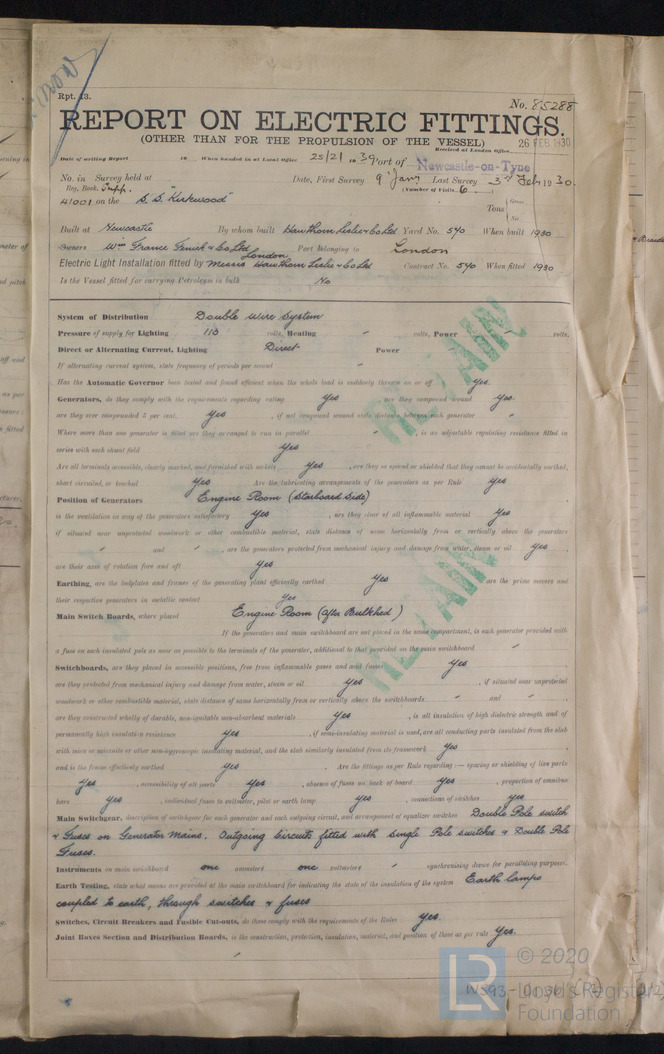 Rpt. 13.
No. 85288
REPORT ON ELECTRIC FITTINGS.
(OTHER THAN FOR THE PROPULSION OF THE VESSEL)
Received at London Office 26 FEB 1930
Date of writing Report 19 When handed in at Local Office 25/2/ 1930 Port of Newcastle-on-Tyne
No. in Survey held at Date, First Survey 9th Jany Last Survey 3rd Feb 1930.
Reg. Book. Supp. (Number of Visits 6)
41001 on the S.S. "Kirkwood" Tons { Gross Net
Built at Newcastle By whom built Hawthorn Leslie & Co Ltd Yard No. 570 When built 1930
Owners Wm France Fenwick & Co Ltd London Port belonging to London
Electric Light Installation fitted by Messrs Hawthorn Leslie & Co Ltd Contract No. 570 When fitted 1930
Is the Vessel fitted for carrying Petroleum in bulk No
System of Distribution Double Wire System
Pressure of supply for Lighting 110 volts, Heating " volts, Power " volts.
Direct or Alternating Current, Lighting Direct Power
If alternating current system, state frequency of periods per second "
Has the Automatic Governor been tested and found efficient when the whole load is suddenly thrown on or off yes.
Generators, do they comply with the requirements regarding rating yes, are they compound wound yes.
are they over compounded 5 per cent. yes, if not compound wound state distance between each generator "
Where more than one generator is fitted are they arranged to run in parallel ", is an adjustable regulating resistance fitted in
series with each shunt field yes
Are all terminals accessible, clearly marked, and furnished with sockets yes, are they so spaced or shielded that they cannot be accidentally earthed,
short circuited, or touched yes Are the lubricating arrangements of the generators as per Rule yes
Position of Generators Engine Room (Starboard Side)
is the ventilation in way of the generators satisfactory yes, are they clear of all inflammable material yes
if situated near unprotected woodwork or other combustible material, state distance of same horizontally from or vertically above the generators
" and " are the generators protected from mechanical injury and damage from water, steam or oil yes,
are their axes of rotation fore and aft yes
Earthing, are the bedplates and frames of the generating plant efficiently earthed yes are the prime movers and
their respective generators in metallic contact yes
Main Switch Boards, where placed Engine Room (After Bulkhed)
If the generators and main switchboard are not placed in the same compartment, is each generator provided with
a fuse on each insulated pole as near as possible to the terminals of the generator, additional to that provided on the main switchboard "
Switchboards, are they placed in accessible positions, free from inflammable gases and acid fumes yes,
are they protected from mechanical injury and damage from water, steam or oil yes, if situated near unprotected
woodwork or other combustible material, state distance of same horizontally from or vertically above the switchboards " and "
are they constructed wholly of durable, non-ignitable non-absorbent materials yes, is all insulation of high dielectric strength and of
permanently high insulation resistance yes, if semi-insulating material is used, are all conducting parts insulated from the slab
with mica or micanite or other non-hygroscopic insulating material, and the slab similarly insulated from its framework yes
and is the frame effectively earthed yes. Are the fittings as per Rule regarding:— spacing or shielding of live parts
yes, accessibility of all parts yes, absence of fuses on back of board yes, proportion of omnibus
bars yes, individual fuses to voltmeter, pilot or earth lamp yes, connections of switches yes
Main Switchgear, description of switchgear for each generator and each outgoing circuit, and arrangement of equalizer switches Double Pole switch
& Fuses on Generator Mains. Outgoing Circuits fitted with Single Pole switches & Double Pole
Fuses.
Instruments on main switchboard one ammeters one voltmeters " synchronising device for paralleling purposes.
Earth Testing, state what means are provided at the main switchboard for indicating the state of the insulation of the system Earth lamps
coupled to earth, through switches & fuses
Switches, Circuit Breakers and Fusible Cut-outs, do these comply with the requirements of the Rules yes.
Joint Boxes Section and Distribution Boards, is the construction, protection, insulation, material, and position of these as per rule yes.
RETAIN
RETAIN
© 2020
Lloyd's Register
Foundation